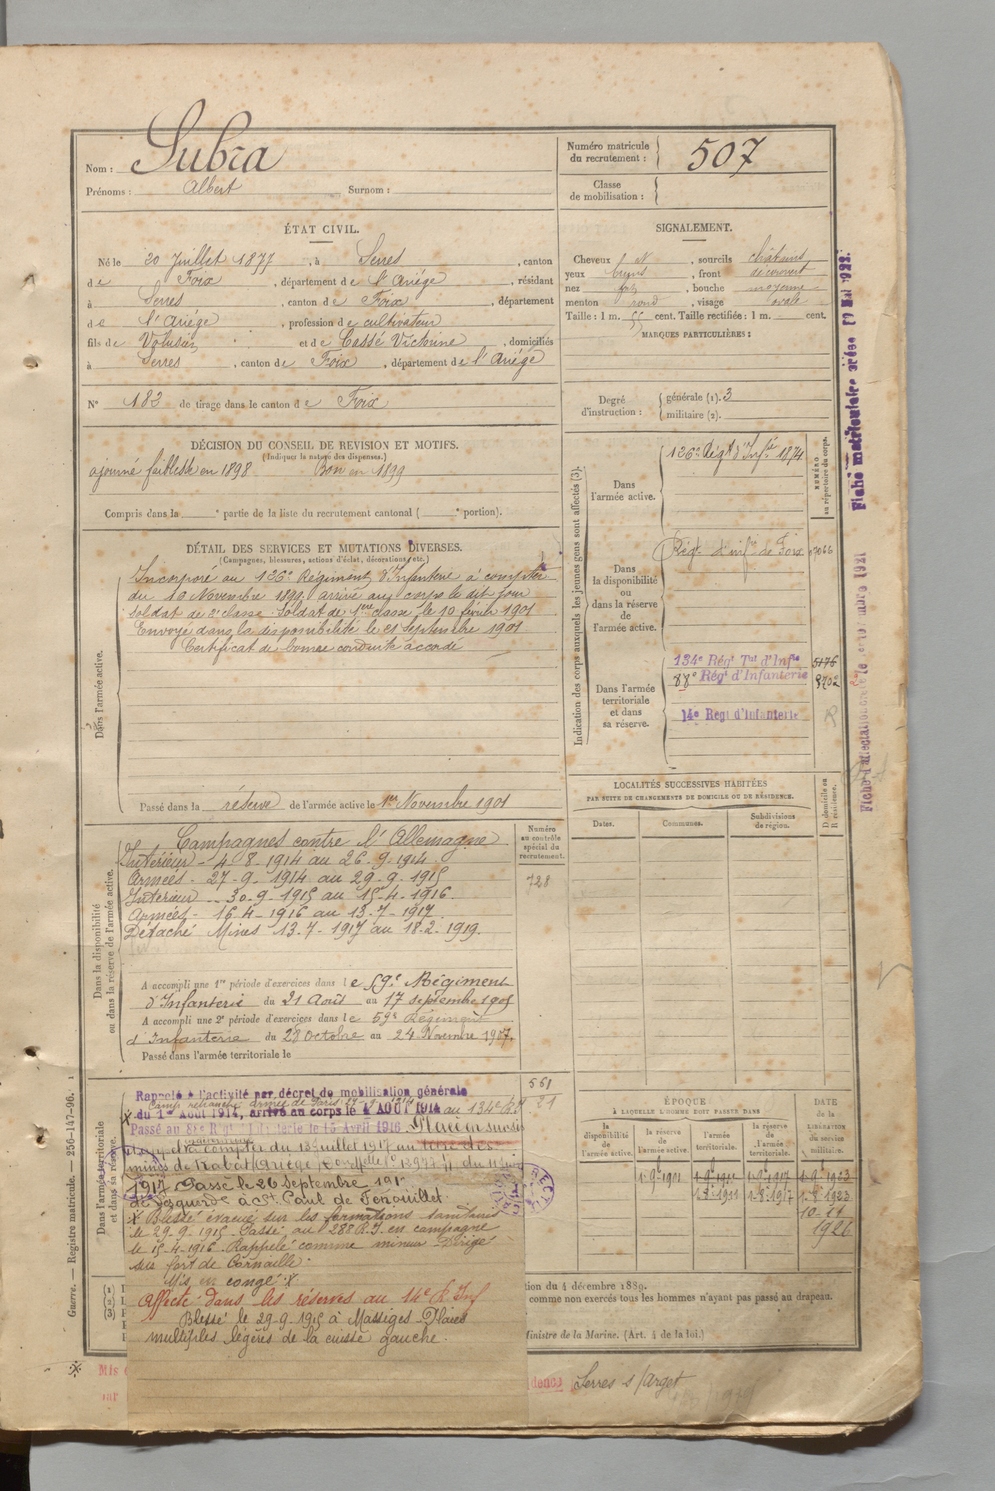 Nom : Subra
Prénoms : Albert Surnom :
Numéro matricule du recrutement : 507
Classe de mobilisation :
ÉTAT CIVIL.
Né le 20 Juillet 1877, à Serres, canton
de Foix, département de l'Ariège, résidant
à Serres, canton de Foix, département
de l'Ariège, profession de cultivateur
fils de Volusien et de Cassé Victorine, domiciliés
à Serres, canton de Foix, département de l'Ariège
N° 183 de tirage dans le canton de Foix
SIGNALEMENT.
Cheveux N, sourcils châtains
yeux bruns, front découvert
nez fort, bouche moyenne
menton rond, visage ovale
Taille : 1 m. 55 cent. Taille rectifiée : 1 m. cent.
MARQUES PARTICULIÈRES :
Degré d'instruction : générale (1). 3
militaire (2).
DÉCISION DU CONSEIL DE REVISION ET MOTIFS.
(Indiquer la nature des dispenses.)
ajourné faiblesse en 1898 Bon en 1899
Compris dans la e partie de la liste du recrutement cantonal ( e portion).
DÉTAIL DES SERVICES ET MUTATIONS DIVERSES.
(Campagnes, blessures, actions d'éclat, décorations, etc.)
Dans l'armée active.
Incorporé au 126e Régiment d'Infanterie à compter
du 10 Novembre 1899 arrivé au corps le dit jour
soldat de 2e classe soldat de 1ère classe le 10 février 1901
Envoyé dans la disponibilité le 21 Septembre 1901
Certificat de bonne conduite accordé
Passé dans la réserve de l'armée active le 1er Novembre 1901
Indication des corps auxquels les jeunes gens sont affectés (3).
NUMÉRO au répertoire du corps.
Dans l'armée active.
126e Régt d'Infie 1874
Dans la disponibilité ou dans la réserve de l'armée active.
Régt d'infie de Foix
Dans l'armée territoriale et dans sa réserve.
134e Régt Tal d'Infie 5176
88e Régt d'Infanterie
14e Régt d'Infanterie R
Fiche matriculaire créée
LOCALITÉS SUCCESSIVES HABITÉES
PAR SUITE DE CHANGEMENTS DE DOMICILE OU DE RÉSIDENCE.
Dates. Communes. Subdivisions de région. D domicile ou R résidence.
Dans la disponibilité ou dans la réserve de l'armée active.
Numéro au contrôle spécial du recrutement.
728
Campagnes contre l'Allemagne
Intérieur - 4-8-1914 au 26-9-1914
Armées - 27-9-1914 au 29-9-1915
Intérieur - 30-9-1915 au 15-4-1916
Armées - 16-4-1916 au 13-7-1917
Détaché Mines 13-7-1917 au 18-2-1919.
A accompli une 1re période d'exercices dans le 59e Régiment
d'Infanterie du 21 Août au 17 septembre 1905
A accompli une 2e période d'exercices dans le 59e Régiment
d'Infanterie du 28 Octobre au 24 Novembre 1907.
Passé dans l'armée territoriale le
Dans l'armée territoriale et dans sa réserve.
Rappelé à l'activité par décret de mobilisation générale
du 1er Août 1914, arrivé au corps le 4 AOUT 1914 au 134e
Passé au 88e Régt d'Infanterie le 15 Avril 1916
compter du 13 Juillet 1917 au titre des
mines de Rabat (Ariège)
1917 Passé le 26 Septembre 191
de Lesquerde à St Paul de Fenouillet
X Blessé évacué sur les formations sanitaires
le 29-9-1915. Passé au 288 R.I. en campagne
le 15-4-1916. Rappelé comme mineur Dirigé
sur fort de Cornaille
Mis en congé X
Affecté dans les réserves au 14e R. Inf
Blessé le 29-9-1915 à Massiges Plaies
multiples légères de la cuisse gauche.
ÉPOQUE
À LAQUELLE L'HOMME DOIT PASSER DANS
la disponibilité de l'armée active. la réserve de l'armée active. l'armée territoriale. la réserve de l'armée territoriale.
DATE de la LIBÉRATION du service militaire.
1-9-1901 1-9-1911 1-9-1917 1-9-1923
1-8-1911 1-8-1917 1-8-1923
1926
tion du 4 décembre 1889.
comme non exercés tous les hommes n'ayant pas passé au drapeau.
Ministre de la Marine. (Art. 4 de la loi.)
Serres s/Arget
Guerre. — Registre matricule. — 256-147-96.